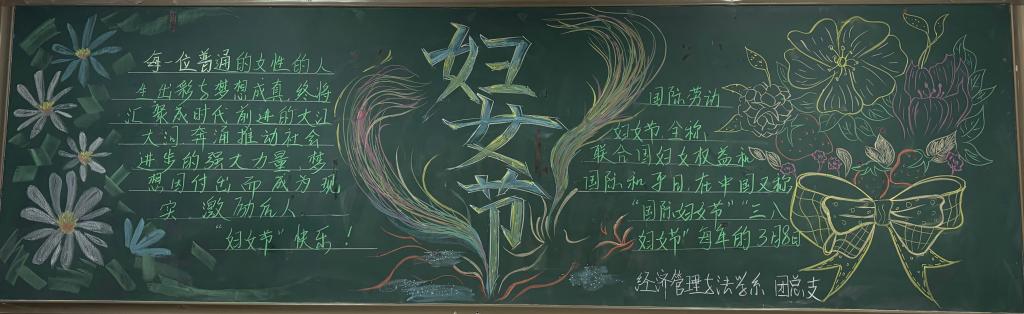 每一位普通的女性的人
生出彩与梦想成真,终将
汇聚成时代前进的大江
大河,奔涌推动社会
进步的强大力量,梦
想因付出而成为现
实,激励后人.
"妇女节"快乐!
妇女节
国际劳动
妇女节,全称
联合国妇女权益和
国际和平日,在中国又称
"国际妇女节""三八
妇女节"每年的3月8日
经济管理与法学系 团总支